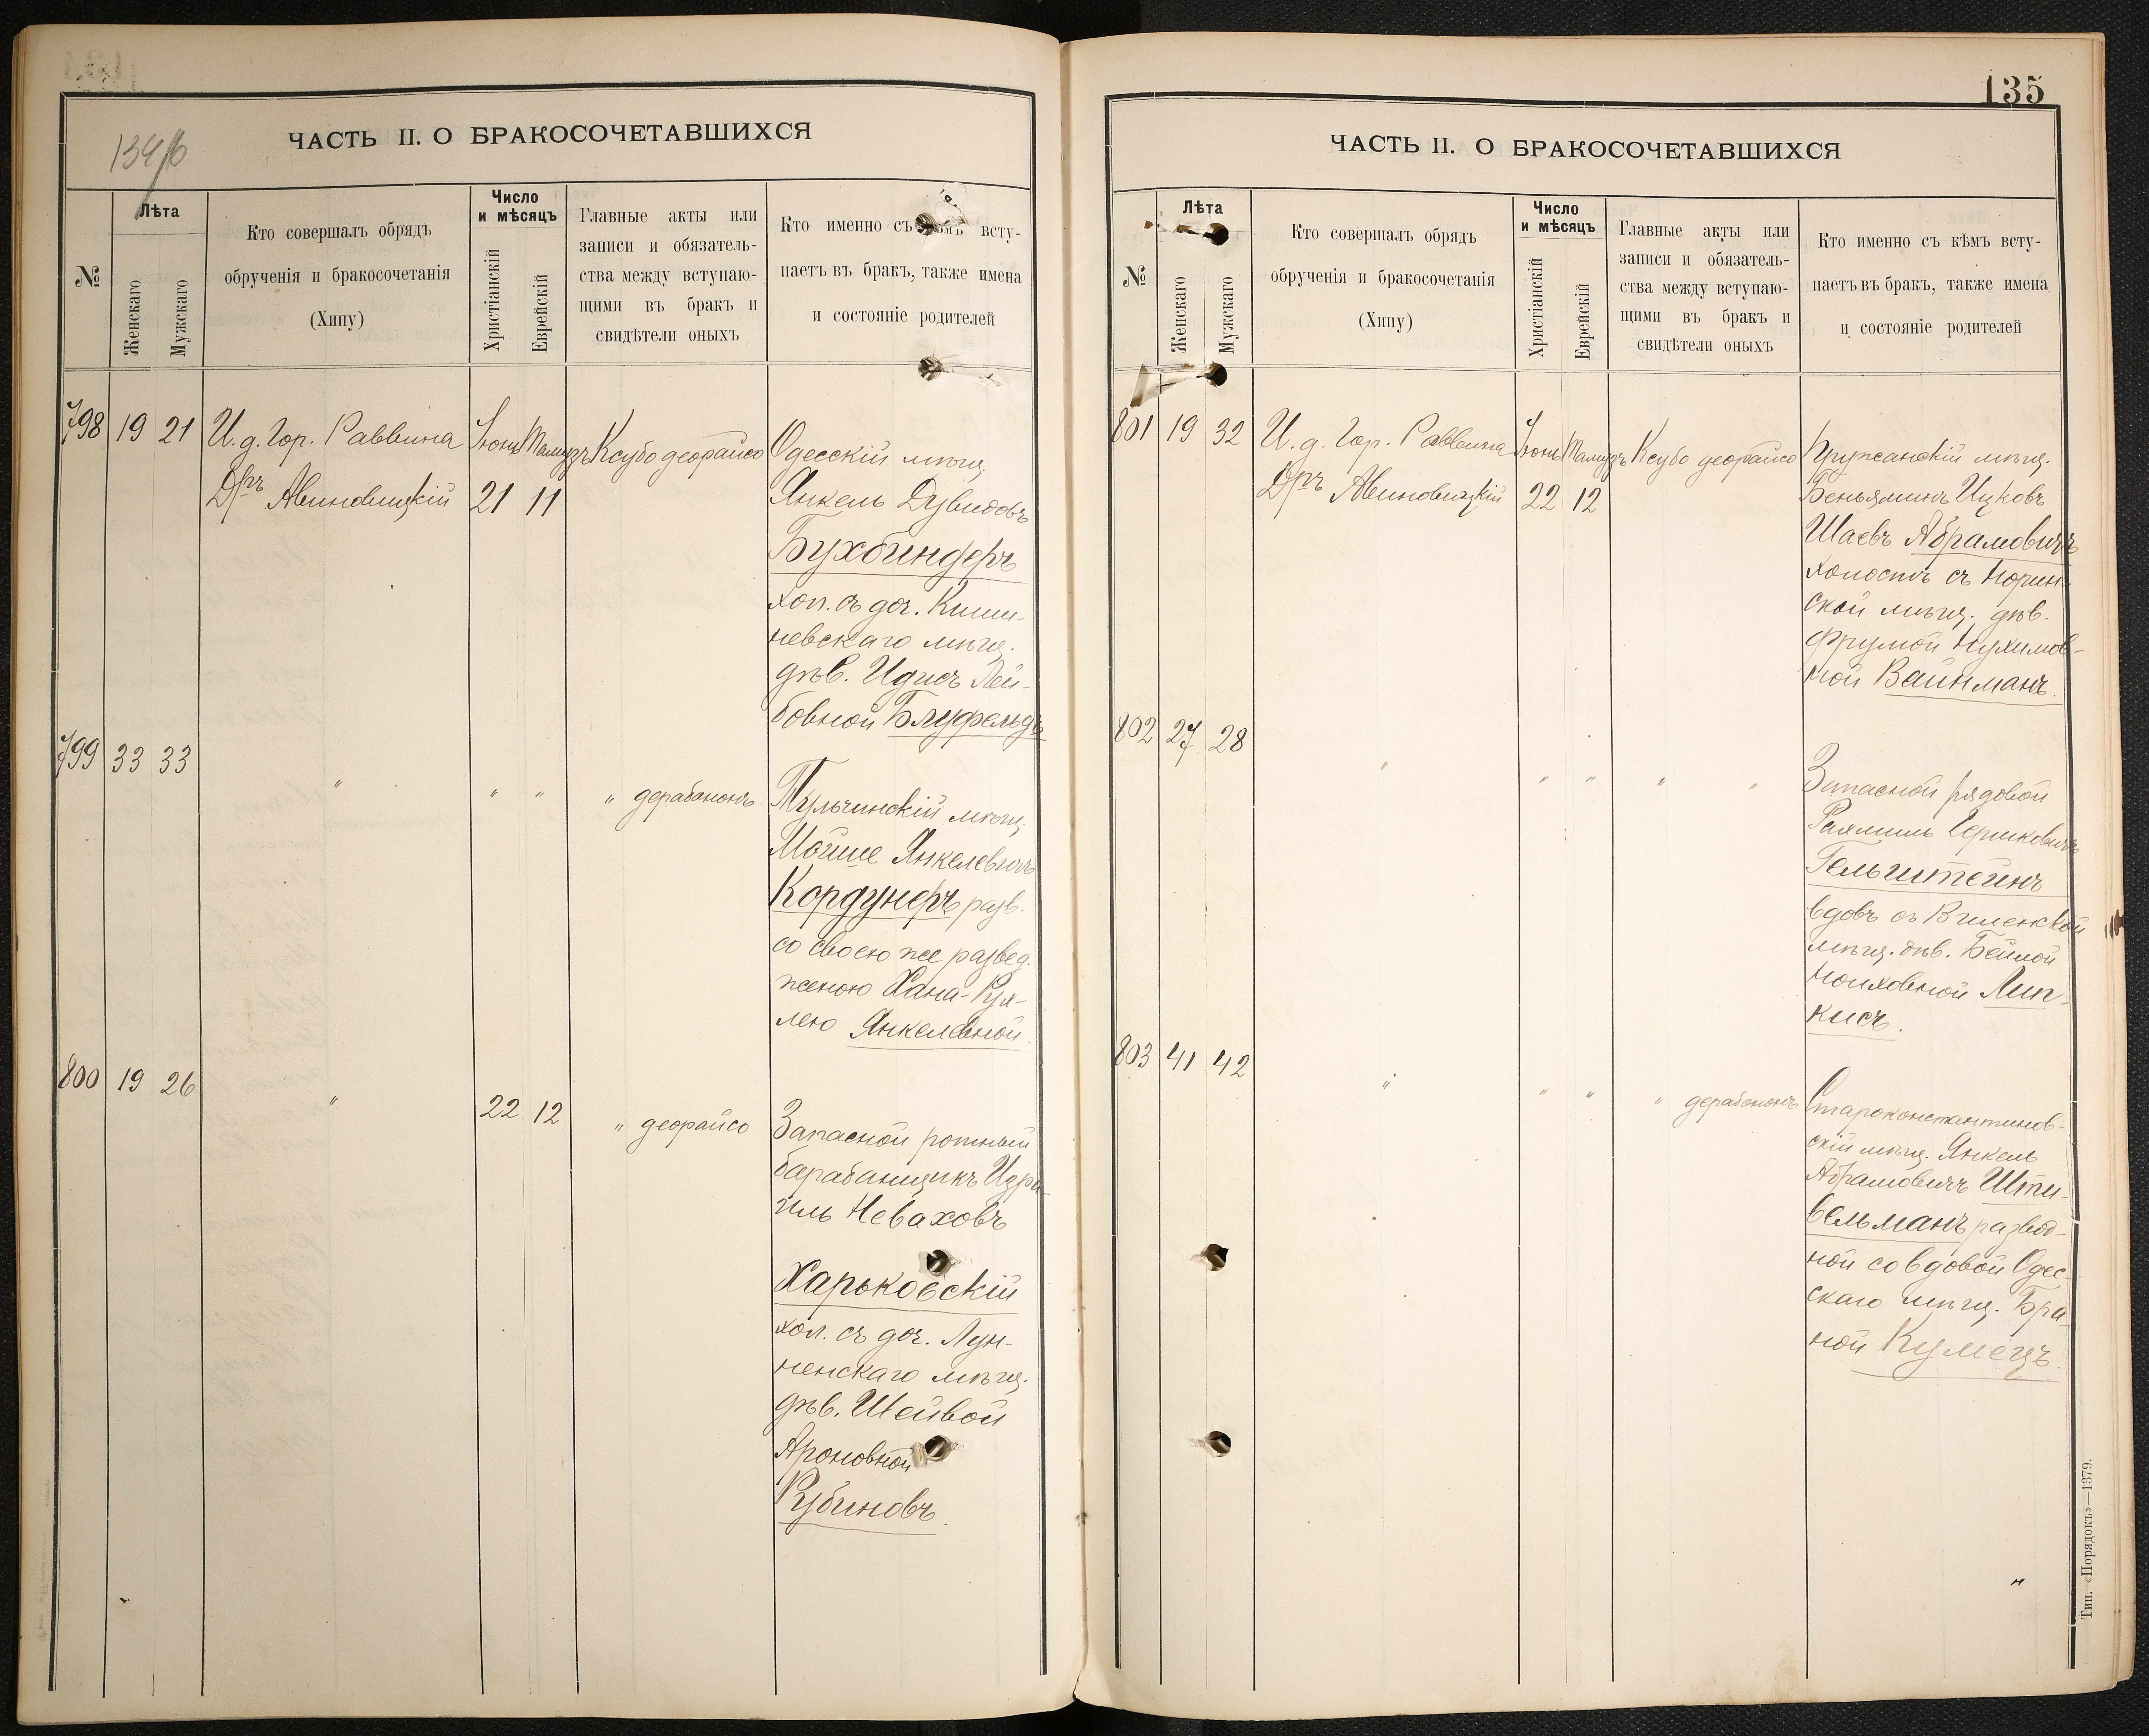 134/б
ЧАСТЬ II. О БРАКОСОЧЕТАВШИХСЯ
№
Лѣта
Женскаго
Мужскаго
Кто совершалъ обрядъ
обрученія и бракосочетанія
(Хипу)
Число
и мѣсяцъ
Христіанскій
Еврейскій
Главные акты или
записи и обязатель-
ства между вступаю-
щими въ бракъ и
свидѣтели оныхъ
Кто именно съ всту-
паетъ въ бракъ, также имена
и состояніе родителей
798 19 21 И. д. Гор. Раввина Іюнь Тамузъ Ксубо деорайсо Одесскій мѣщ.
Дръ Авиновицкій 21 11 Янкель Дувидовъ
Бухбиндеръ
хол. съ доч. Киши-
невскаго мѣщ.
дѣв. Идисъ Лей-
бовной Блуфельдъ
799 33 33 " " " " дерабононъ Тульчинскій мѣщ.
Мойше Янкелевичъ
Кордунеръ разв.
со своею же развед.
женою Хана-Рух-
лею Янкелевной
800 19 26 " 22 12 " деорайсо Запасной ротный
барабанщикъ Изра-
иль Неваховъ
Харьковскій
хол. съ доч. Лун-
ненскаго мѣщ.
дѣв. Шейвой
Ароновной
Рубиновъ.
135
ЧАСТЬ II. О БРАКОСОЧЕТАВШИХСЯ
№
Лѣта
Женскаго
Мужскаго
Кто совершалъ обрядъ
обрученія и бракосочетанія
(Хипу)
Число
и мѣсяцъ
Христіанскій
Еврейскій
Главные акты или
записи и обязатель-
ства между вступаю-
щими въ бракъ и
свидѣтели оныхъ
Кто именно съ кѣмъ всту-
паетъ въ бракъ, также имена
и состояніе родителей
801 19 32 И. д. Гор. Раввина Іюнь Тамузъ Ксубо деорайсо Пружанскій мѣщ.
Дръ Авиновицкій 22 12 Беньяминъ Ицковъ
Шаевъ Абрамовичъ
холостъ съ Норин-
ской мѣщ. дѣв.
Фрумой Нухимов-
ной Вайнманъ.
802 27 28 " " " " " Запасной рядовой
Рахмиль Гершковичъ
Гельштейнъ
вдовъ съ Виленской
мѣщ. дѣв. Бейлой
Ноиховной Лип-
кисъ.
803 41 42 " " " " дерабононъ Староконстантинов-
скій мѣщ. Янкель
Абрамовичъ Шти-
вельманъ развод-
ной со вдовой Одес-
скаго мѣщ. Бра-
ной Кумецъ.
Тип. «Порядокъ»—1379.